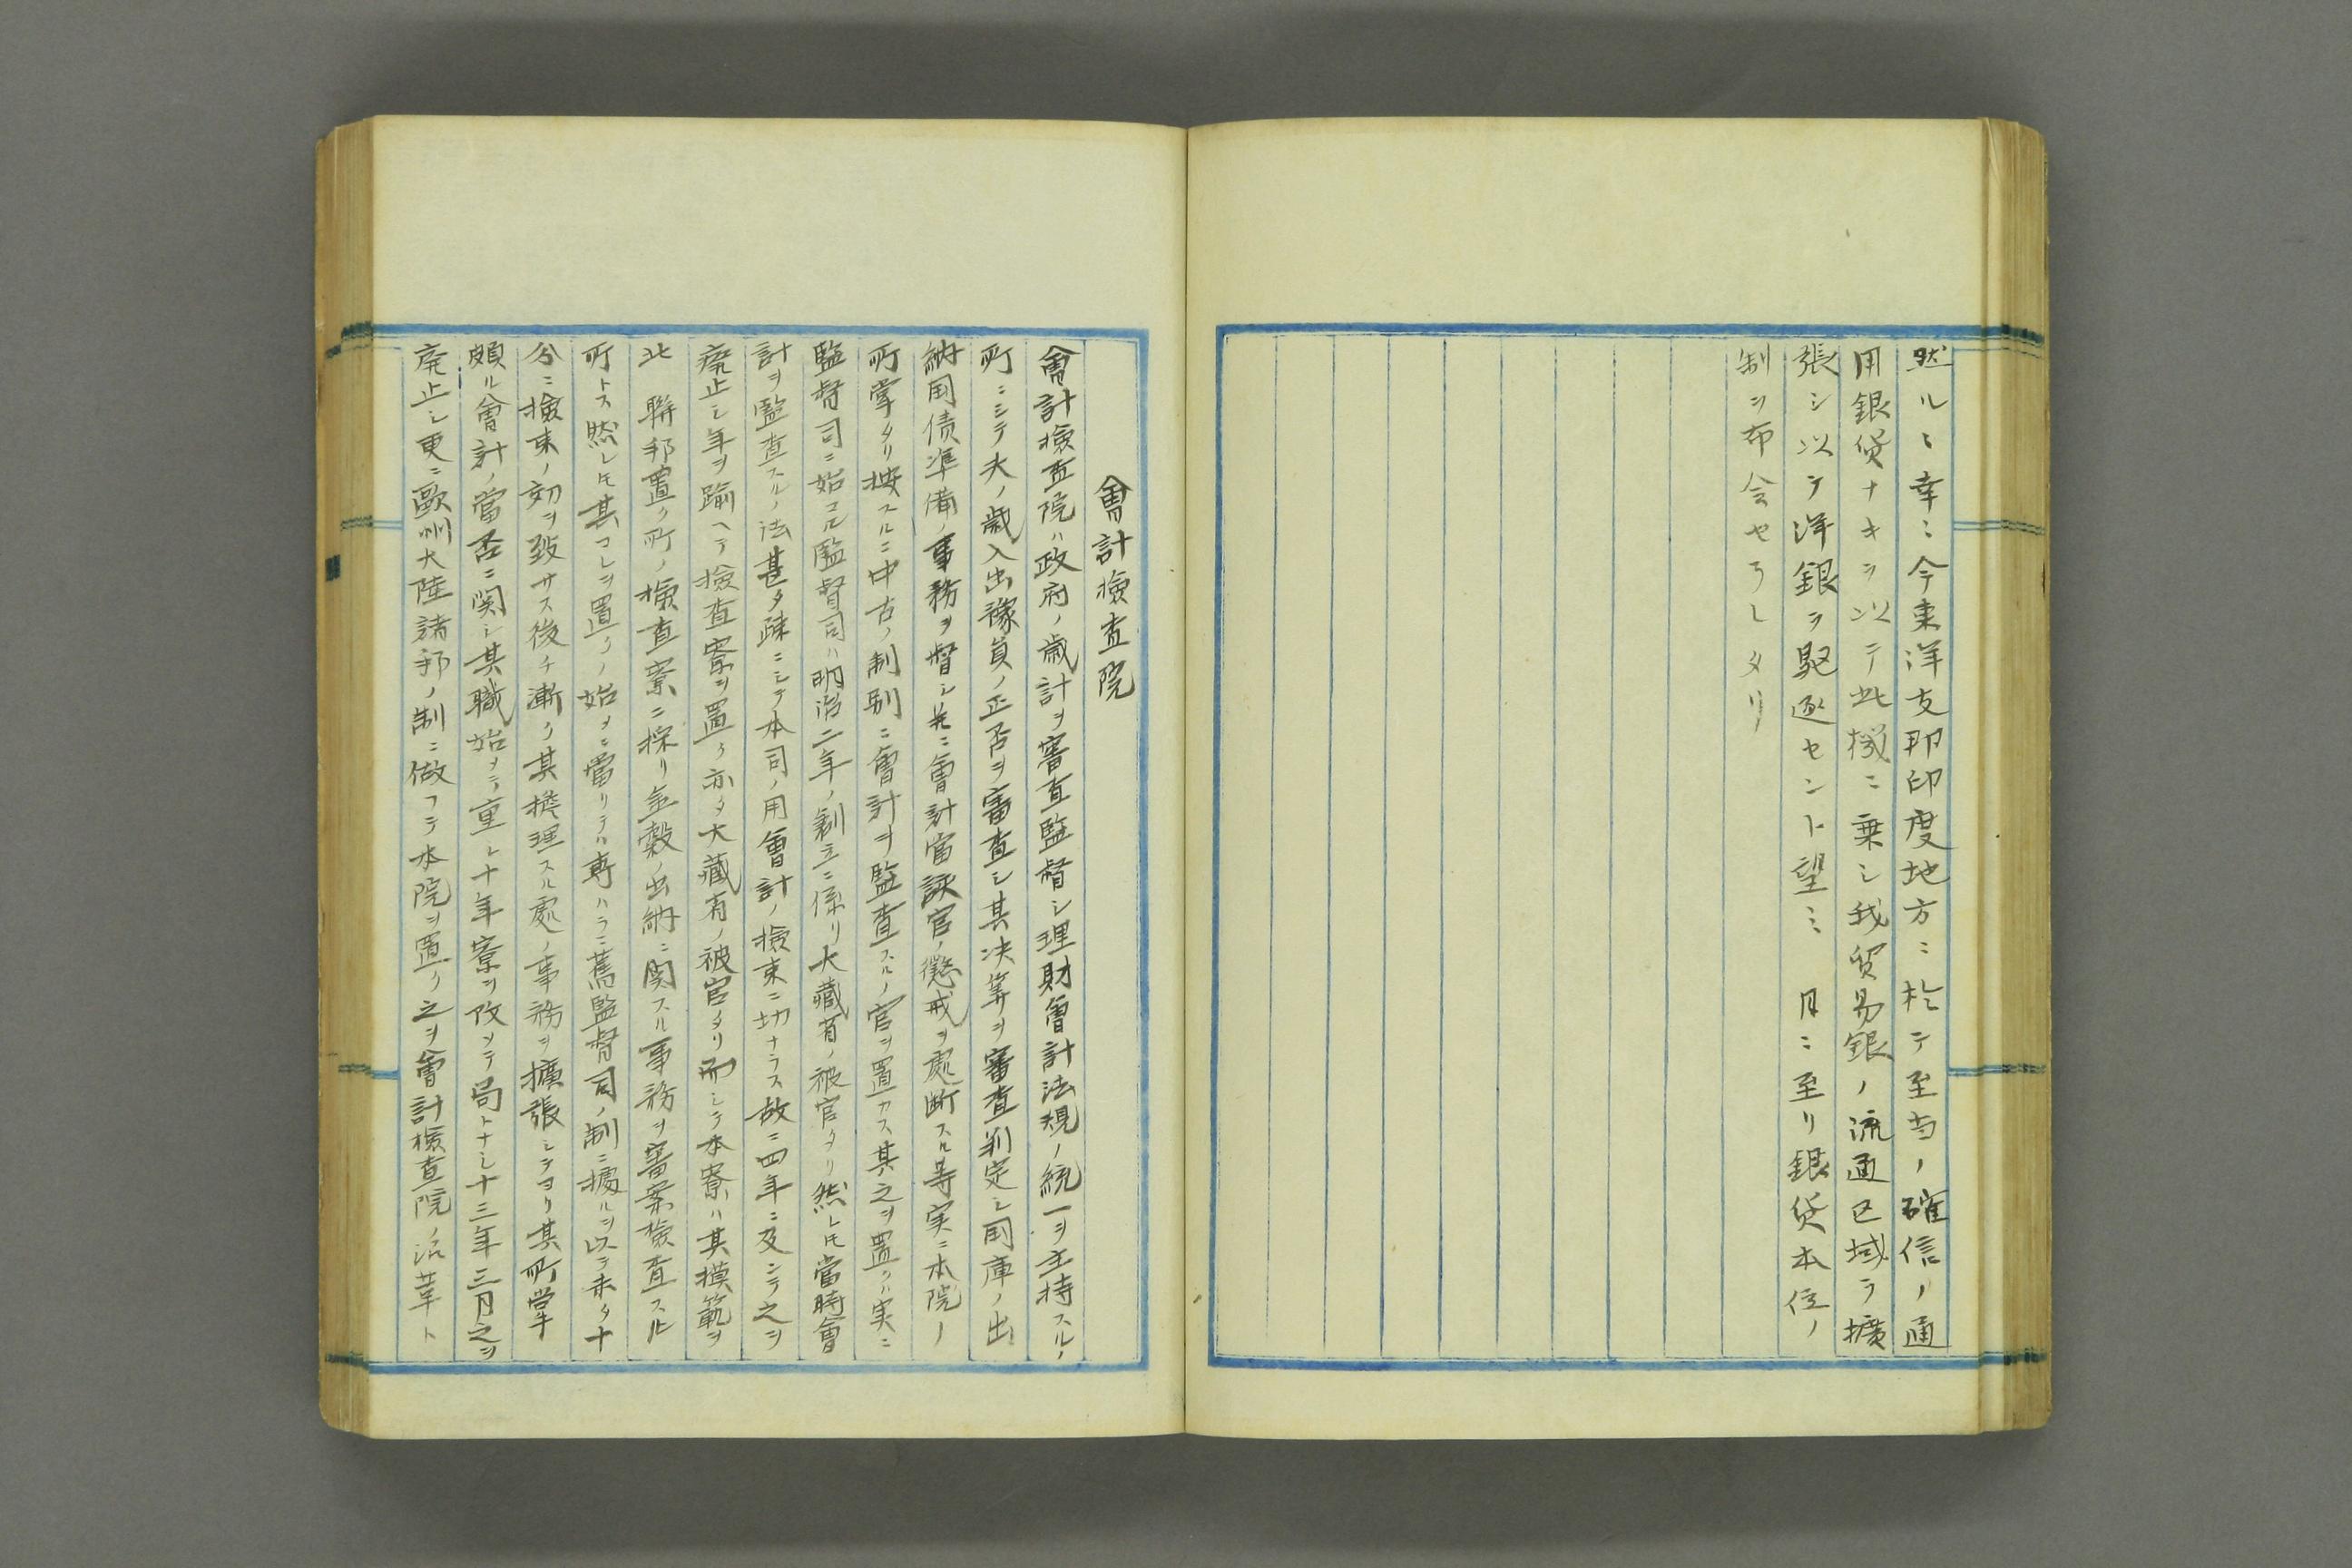 然ルニ幸ニ今東洋支那印度地方ニ於テ至当ノ確信ノ通
用銀貨ナキヲ以テ此機ニ乗シ我貿易銀ノ流通区域ヲ擴
張シ以テ洋銀ヲ駆逐セント望ミ 月ニ至リ銀貨本位ノ
制ヲ布令セラレタリ
會計檢査院
會計檢査院ハ政府ノ歳計ヲ審査監督シ理財會計法規ノ統一ヲ主持スルノ
所ニシテ夫ノ歳入出豫算ノ正否ヲ審査シ其决算ヲ審査判定シ国庫ノ出
納国債準備ノ事務ヲ督シ並ニ會計當該官ノ懲戒ヲ處断スル等実ニ本院ノ
所掌タリ按スルニ中古ノ制別ニ會計ヲ監査スルノ官ヲ置カス其之ヲ置クハ実ニ
監督司ニ始マル監督司ハ明治二年ノ創立ニ係リ大藏省ノ被官タリ然レ𪜈當時會
計ヲ監査スルノ法甚タ疎ニシテ本司ノ用會計ノ檢束ニ切ナラス故ニ四年ニ及ンテ之ヲ
癈止シ年ヲ踰ヘテ檢査寮ヲ置ク亦タ大藏省ノ被官タリ而シテ本寮ハ其摸範ヲ
北 聯邦置ク所ノ檢査寮ニ採リ金穀ノ出納ニ関スル事務ヲ審案檢査スル
所トス然レ𪜈其コレヲ置クノ始メニ當リテハ専ハラニ舊監督司ノ制ニ據ルヲ以テ未タ十
分ニ檢束ノ効ヲ致サス後チ漸ク其摸理スル處ノ事務ヲ擴張シテヨリ其所掌
頗ル會計ノ當否ニ関シ其職始メテ重シ十年寮ヲ改メテ局トナシ十三年三月之ヲ
廃止シ更ニ歐洲大陸諸邦ノ制ニ倣フテ本院ヲ置ク之ヲ會計檢査院ノ沿革ト